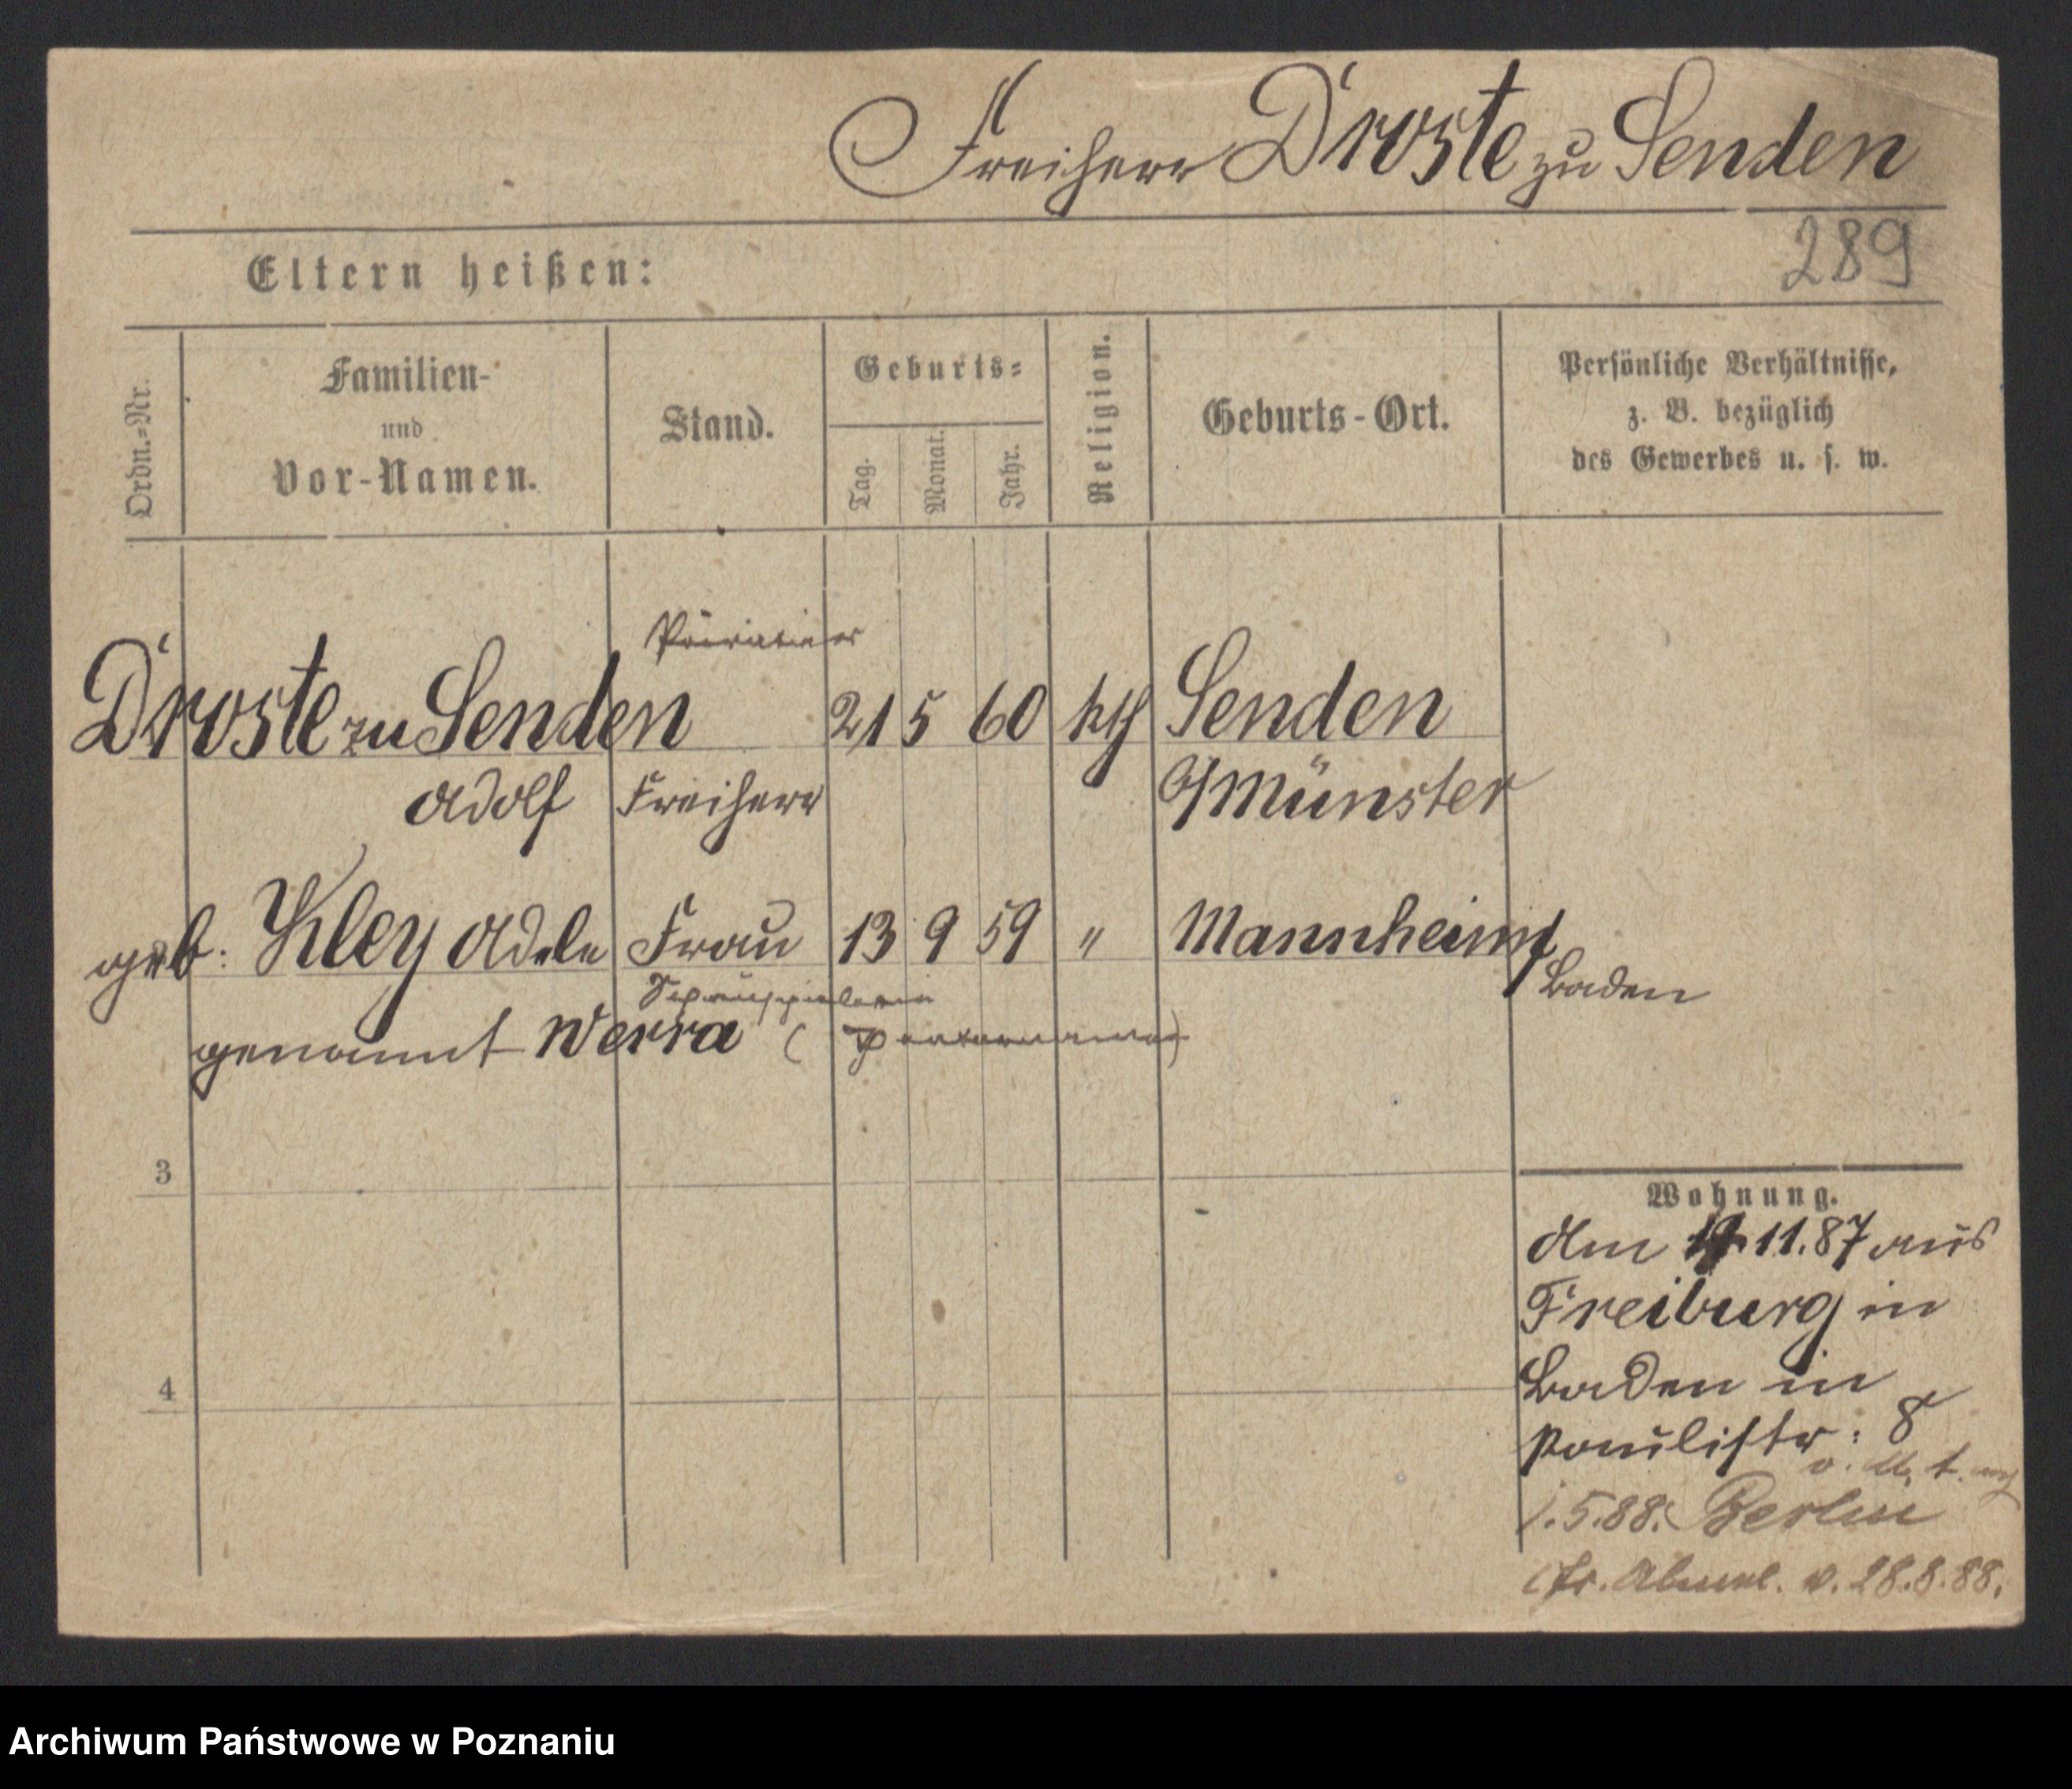 Freiherr Droste zu Senden
289
Eltern heißen:
Ordn.=Nr.
Familien-
und
Vor-Namen.
Stand.
Geburts=
Tag.
Monat.
Jahr.
Religion.
Geburts-Ort.
Persönliche Verhältnisse,
z. B. bezüglich
des Gewerbes u. s. w.
Droste zu Senden 21 5 60 kth Senden
Adolf Freiherr Münster
geb: Kley Adele Frau 13 9 59 " Mannheim
Baden
Schauspielerin
genannt Werra (Theatername)
3
4
Wohnung.
Am 11.87 aus
Freiburg in
Baden in
Paulistr: 8
1.5.88. Berlin
Abmel. v. 28.8.88.
Archiwum Państwowe w Poznaniu